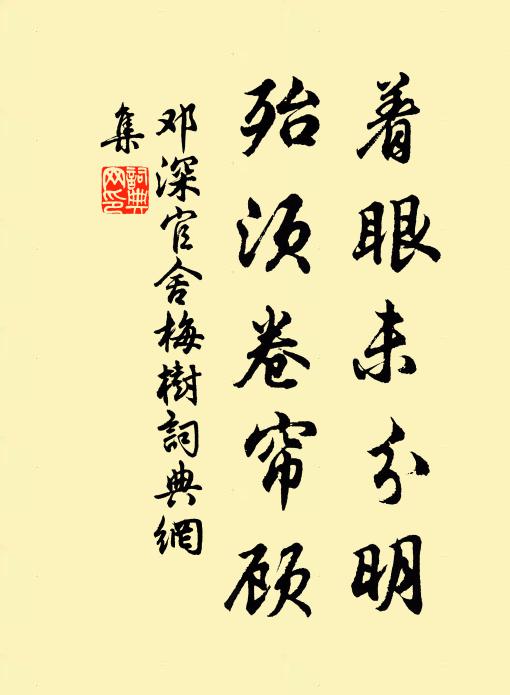 着眼未分明
殆须卷帘顾
邓深官舍梅樹詞典網
集
詞典
网印